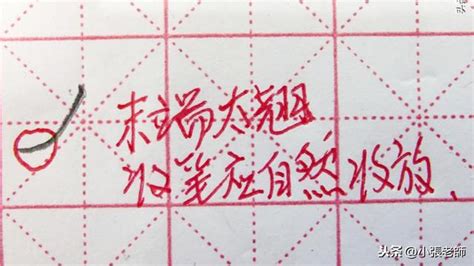 末端太翘
收笔应自然收放.
头条@小張老師